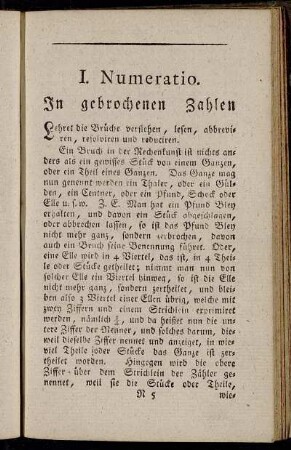 I. Numeratio.
In gebrochenen Zahlen
Lehret die Brüche verstehen, lesen, abbrevi-
ren, resolviren und reduciren.
Ein Bruch in der Rechenkunst ist nichts an-
ders als ein gewisses Stück von einem Ganzen,
oder ein Theil eines Ganzen. Das Ganze mag
nun genennt werden ein Thaler, oder ein Gül-
den, ein Centner, oder ein Pfund, Schock oder
Elle u. s. w. Z. E. Man hat ein Pfund Bley
erhalten, und davon ein Stück abgeschlagen,
oder abbrechen lassen, so ist das Pfund Bley
nicht mehr ganz, sondern zerbrochen, davon
auch ein Bruch seine Benennung führet. Oder,
eine Elle wird in 4 Viertel, das ist, in 4 Thei-
le oder Stücke getheilet; nimmt man nun von
solcher Elle ein Viertel hinweg, so ist die Elle
nicht mehr ganz, sondern zertheilet, und blei-
ben also 3 Viertel einer Ellen übrig, welche mit
zwey Ziffern und einem Strichlein exprimiret
werden, nämlich ¾, und da heißet nun die un-
tere Ziffer der Nenner, und solches darum, die-
weil dieselbe Ziffer nennet und anzeiget, in wie-
viel Theile oder Stücke das Ganze ist zer-
theilet worden. Hingegen wird die obere
Ziffer über dem Strichlein der Zähler ge-
nennet, weil sie die Stücke oder Theile,
N 5 wie-